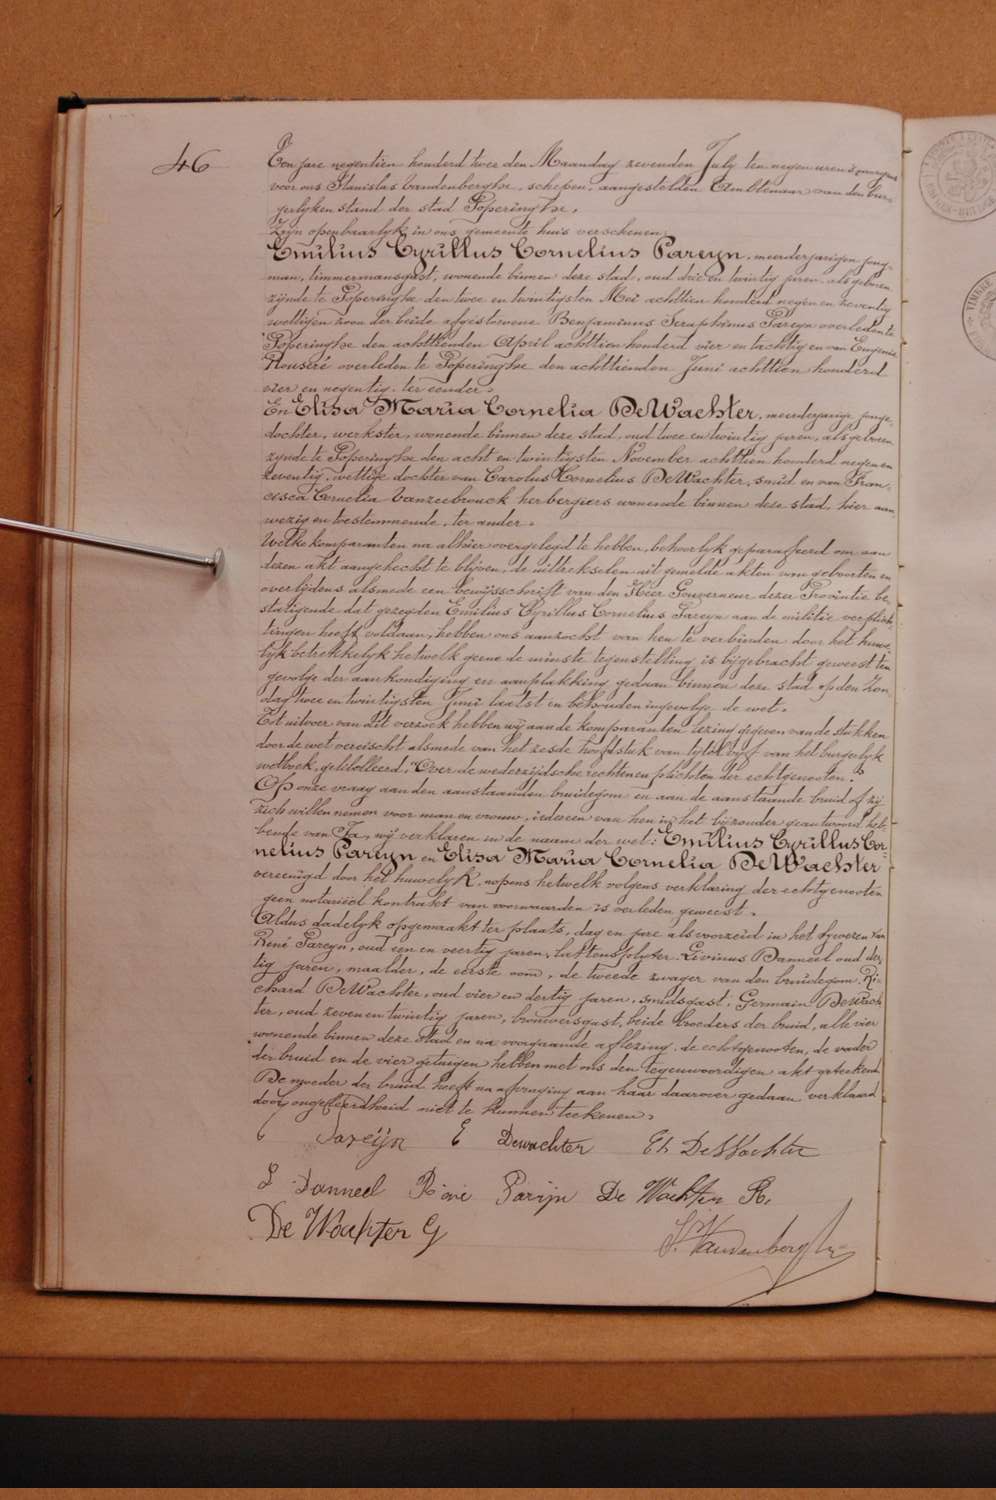 46
Ten jare negentien honderd twee den Maandag zevenden July ten negen uren 's morgens
voor ons Stanislas Vandenberghe, schepen, aangestelden Ambtenaar van den bur-
gerlyken stand der stad Poperinghe,
Zijn openbaarlyk in ons gemeente huis verschenen
Emilius Cyrillus Cornelius Pareyn, meerderjarigen jong-
man, timmermansgast, wonende binnen deze stad, oud drie en twintig jaren, als geboren
zijnde te Poperinghe den twee en twintigsten Mei achttien honderd negen en zeventig
wettigen zoon der beide afgestorvene Benjaminus Seraphinus Pareyn overleden te
Poperinghe den achttienden April achttien honderd vier en tachtig en van Eugenie
Rouseré overleden te Poperinghe den achttienden Juni achttien honderd
vier en negentig, ter eender.
En Elisa Maria Cornelia DeWachter, meerderjarige jonge-
dochter, werkster, wonende binnen deze stad, oud twee en twintig jaren, als geboren
zynde te Poperinghe den acht en twintigsten November achttien honderd negen en
zeventig, wettige dochter van Carolus Cornelius DeWachter, smid en van Fran-
cisca Cornelia Vanzeebrouck herbergiers wonende binnen deze stad, hier aan-
wezig en toestemmende, ter ander.
Welke komparanten na alhier overgelegd te hebben, behoorlyk geparafeerd om aan
dezen akt aangehecht te blyven, de uittrekselen uit gemelde akten van geboorten en
overlijdens alsmede een bewijsschrift van den Heer Gouverneur dezer Provintie be-
statigende dat gezegden Emilius Cyrillus Cornelius Pareyn aan de militie verplich-
tingen heeft voldaan, hebben ons aanzocht van hen te verbinden door het huwe-
lyk betrekkelyk hetwelk geene de minste tegenstelling is bijgebracht geweest ten
gevolge der aankondiging en aanplakking gedaan binnen deze stad op den Zon-
dag twee en twintigsten Juni laatst en behouden ingevolge de wet.
Tot uitvoer van dit verzoek hebben wij aan de komparanten lezing gegeven van de stukken
door de wet vereischt alsmede van het zesde hoofdstuk van tytel vyf van het burgerlyk
wetboek, getitelleerd, "Over de wederzijdsche rechten en plichten der echtgenoten."
Op onze vraag aan den aanstaanden bruidegom en aan de aanstaande bruid of zij
zich willen nemen voor man en vrouw, iedereen van hen in het bijzonder geantwoord heb-
bende van Ja, wij verklaren in de naam der wet: Emilius Cyrillus Cor-
nelius Pareyn en Elisa Maria Cornelia DeWachter
vereenigd door het huwelyk, nopens hetwelk volgens verklaring der echtgenooten
geen notariëel kontrakt van voorwaarden is verleden geweest.
Aldus dadelyk opgemaakt ter plaats, dag en jare als voorzeid in het bywezen van
René Pareyn, oud een en veertig jaren, lattensplyter, Livinus Danneel oud der-
tig jaren, maalder, de eerste oom, de tweede zwager van den bruidegom, Ri-
chard DeWachter, oud vier en dertig jaren, smidsgast, Germain DeWach-
ter, oud zeven en twintig jaren, brouwersgast, beide broeders der bruid, alle vier
wonende binnen deze stad en na voorgaande aflezing, de echtgenooten, de vader
der bruid en de vier getuigen hebben met ons den tegenwoordigen akt geteekend
De moeder der bruid heeft na afvraging aan haar daarover gedaan verklaard
door ongeleerdheid niet te kunnen teekenen.
Pareijn E Dewachter Ch DeWachter
L Danneel René Parijn De Wachter R.
De Wachter G
S. Vandenberghe